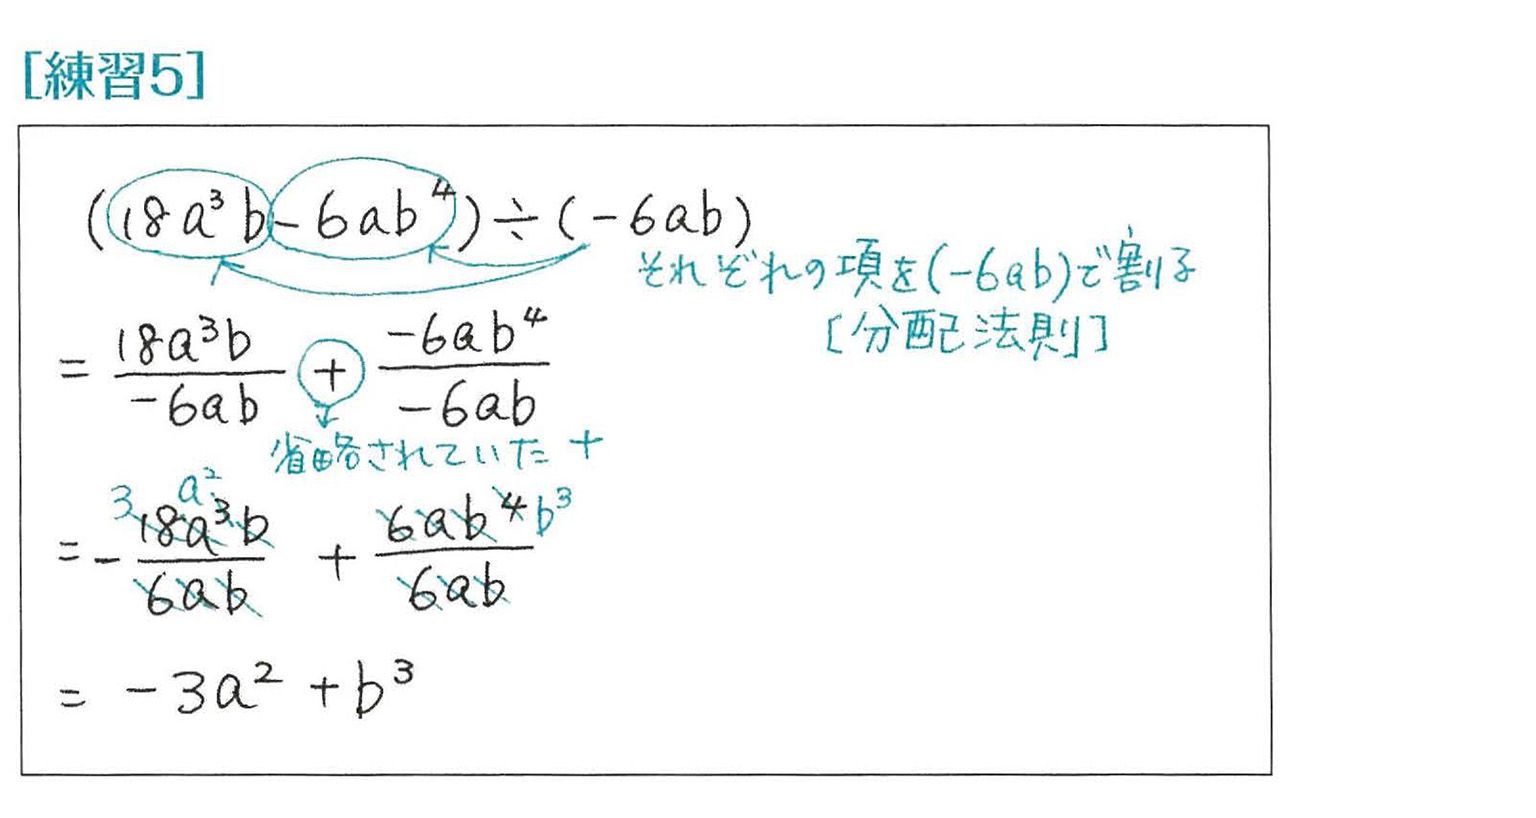 [練習5]
(18a³b-6ab⁴)÷(-6ab)
それぞれの項を(-6ab)で割る
[分配法則]
= 18a³b/-6ab + -6ab⁴/-6ab
省略されていた +
3 a² b³
= - 18a³b/6ab + 6ab⁴/6ab
= -3a² + b³